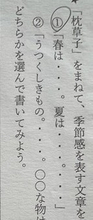 「枕草子」をまねて、季節感を表す文章を
①「春は・・・・。夏は・・・・。・・・・」
②「うつくしきもの。・・・・。〇〇な物は
どちらかを選んで書いてみよう。